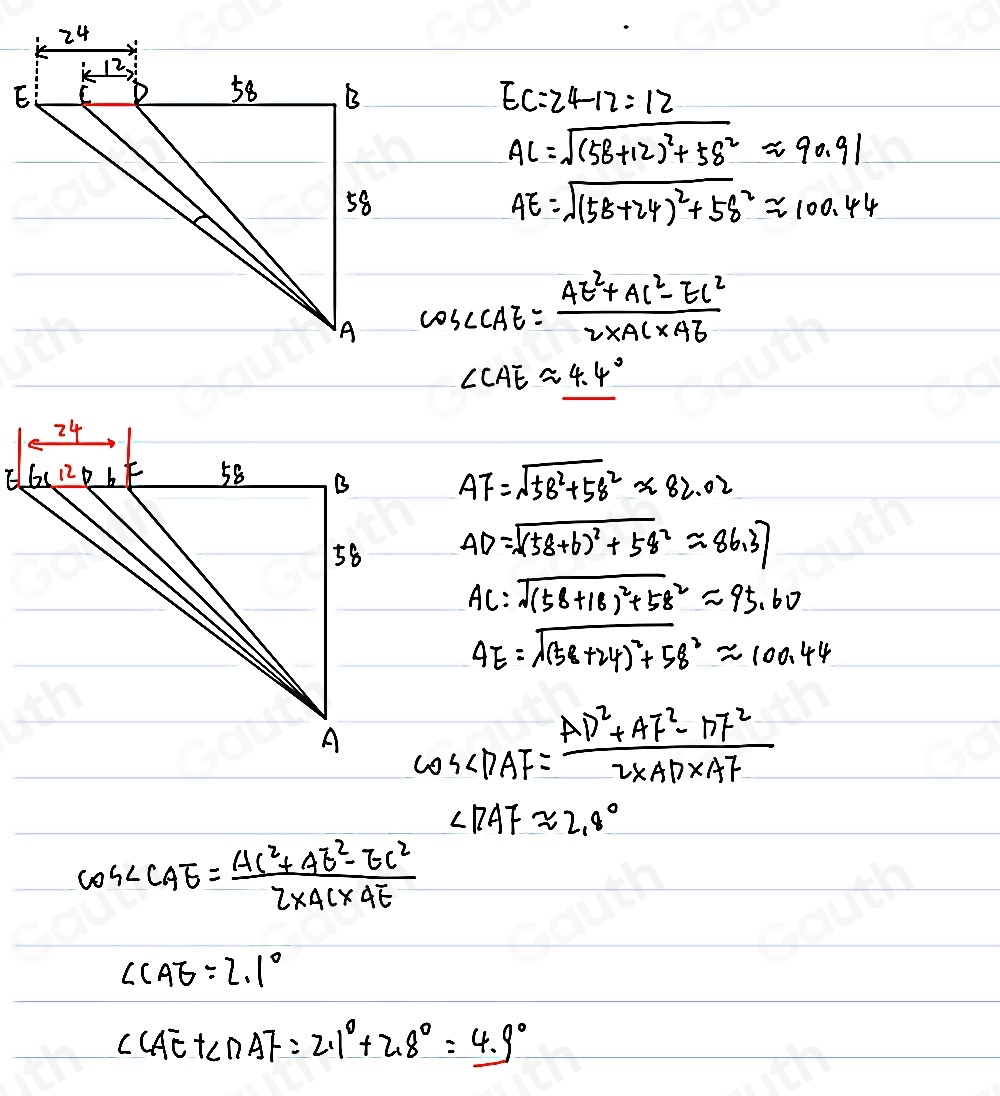 24
12
E C D 58 B
58
A
EC=24-12=12
AC=√(58+12)²+58² ≈90.91
AE=√(58+24)²+58² ≈100.44
cos∠CAE= AE²+AC²-EC² / 2×AC×AE
∠CAE≈4.4°
24
E 6 C 12 D 6 F 58 B
58
A
AF=√58²+58² ≈82.02
AD=√(58+6)²+58² ≈86.37
AC=√(58+18)²+58² ≈95.60
AE=√(58+24)²+58² ≈100.44
cos∠DAF= AD²+AF²-DF² / 2×AD×AF
∠DAF≈2.8°
cos∠CAE= AC²+AE²-EC² / 2×AC×AE
∠CAE=2.1°
∠CAE+∠DAF=2.1°+2.8°=4.9°
Gauth